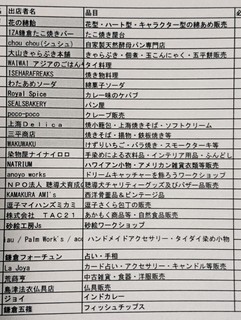 出店者名 品目 必
花の綿飴 花型・ハート型・キャラクター型の綿あめ販売
IZA鎌倉たこ焼きバー たこ焼き屋台
chou chou(シュシュ) 自家製天然酵母パン専門店
大山きゃらぶき本舗 きゃらぶき・佃煮・玉こんにゃく・五平餅販売
WA(WA) アジアのごはん タイ料理
ISEHARAFREAKS 焼き物料理
わたあめソーダ かき氷
Royal Spice カレー味のケバブ
SEALSBAKERY パン屋
poco-poco クレープ販売
上海Delica 焼小籠包・上海焼きそば・ソフトクリーム
三平商店 焼きそば・揚物・鉄板焼き等
WAKUWAKU けずりいちご・バラ焼き・スモークターキ等
染物屋ナイナイロロ 手染めによる衣料品・インテリア用品・ふんどし
NATRIUM ハワイアン小物・アメリカン雑貨衣類等販売
anoyo works ドリームキャッチャーを飾ろうワークショップ
NPO法人 聴導犬育成の 聴導犬チャリティーグッズ及びバザー品販売
KAMAKURA AWI's 西洋骨董品＆ビンテージ品
逗子マイハンズミカモ 逗子さくら包丁の販売
株式会社 TAC21 あかもく商品等・自然食品販売
砂絵工房Js 砂絵ワークショップ
au / Palm Work's / ac ハンドメイドアクセサリー・タイダイ染め小物
鎌倉フォーチュン 占い・手相
La Joya カード占い・アクセサリー・キャンドル等販売
荒商亭 中古雑貨・食器・洋服販売
島津法衣仏具店 仏具販売
ジョイ インドカレー
鎌倉五穂 フィッシュチップス